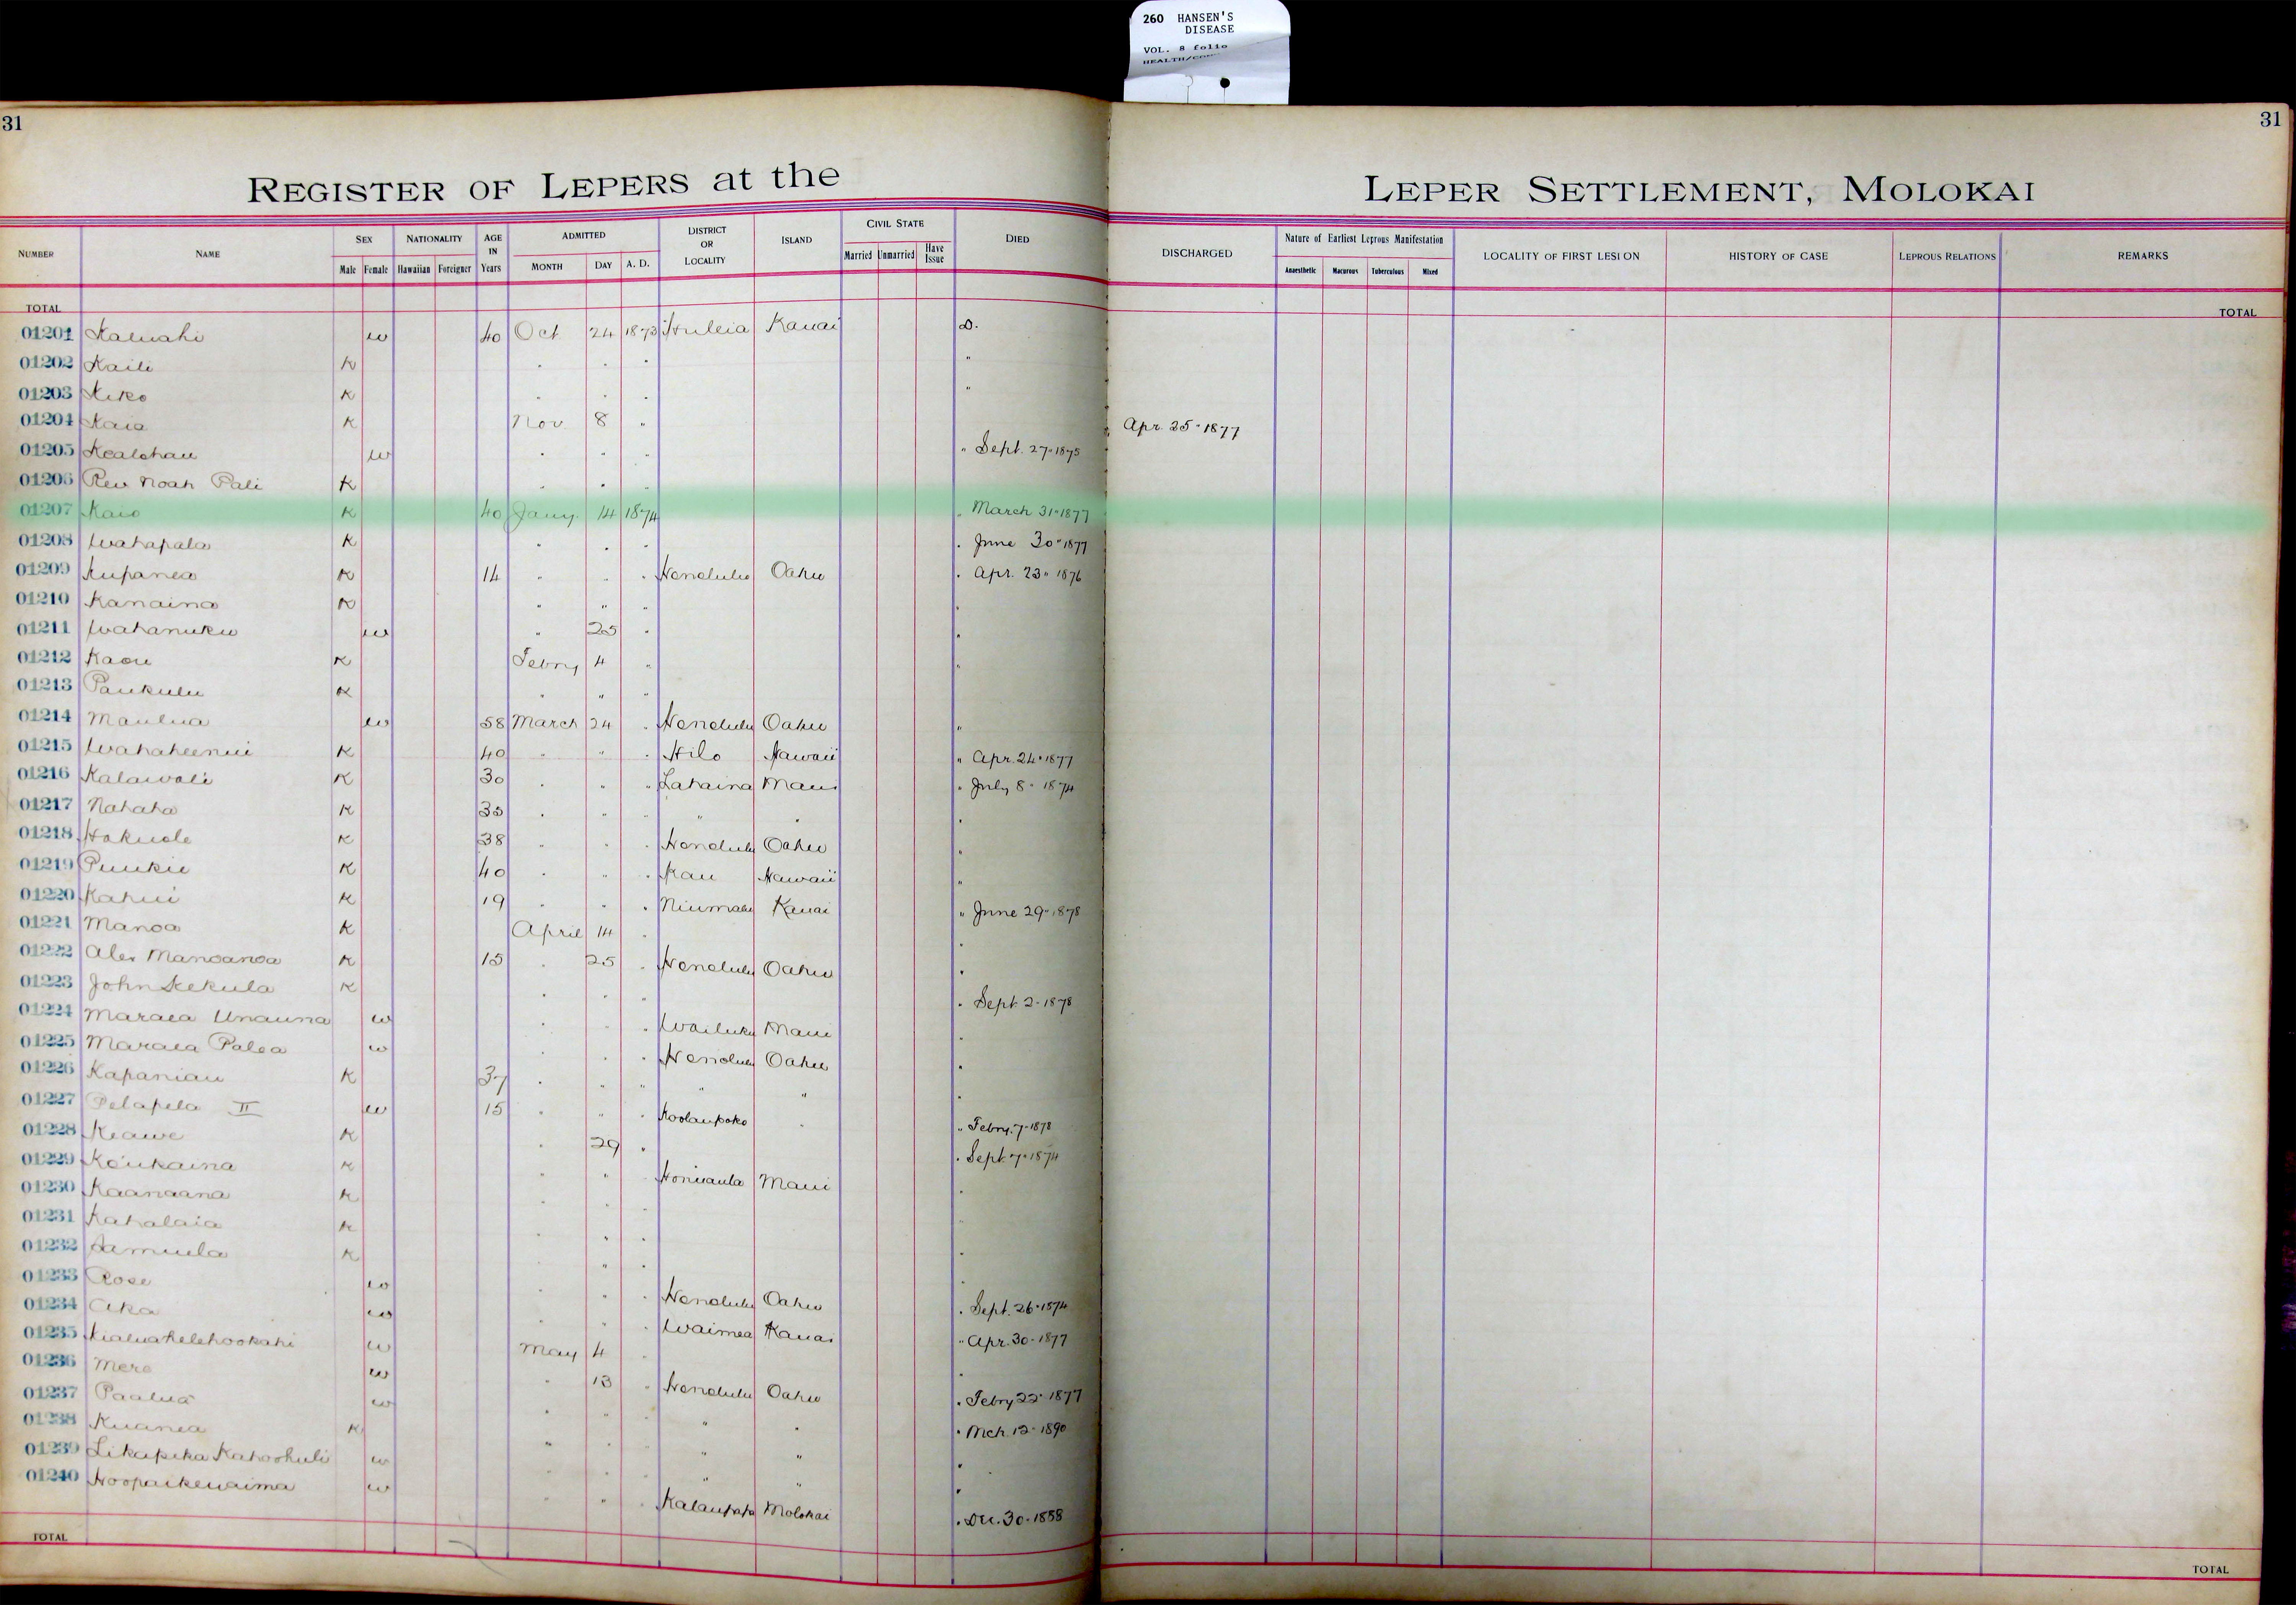 260 HANSEN'S
DISEASE
VOL. 8 folio
31
31
REGISTER OF LEPERS at the
LEPER SETTLEMENT, MOLOKAI
NUMBER NAME SEX Male Female NATIONALITY Hawaiian Foreigner AGE IN Years ADMITTED MONTH DAY A. D. DISTRICT OR LOCALITY ISLAND CIVIL STATE Married Unmarried Have Issue DIED
DISCHARGED Nature of Earliest Leprous Manifestation Anaesthetic Macurous Tuberculous Mixed LOCALITY OF FIRST LESION HISTORY OF CASE LEPROUS RELATIONS REMARKS
TOTAL TOTAL
01201 Kaluahi w 40 Oct 24 1873 Huleia Kauai D.
01202 Kaili K " " " "
01203 Kiko K " " " "
01204 Kaia K Nov. 8 " " Apr. 25" 1877
01205 Kealohau w " " " " Sept. 27" 1875
01206 Rev Noah Pali K " " "
01207 Kaio K 40 Jany. 14 1874 " March 31" 1877
01208 Wahapala K " " " " June 30" 1877
01209 Kupanea K 14 " " " Honolulu Oahu " Apr. 23" 1876
01210 Kanaina K " " " "
01211 Wahanuku w " 25 " "
01212 Kaou K Febry 4 " "
01213 Paukulu K " " "
01214 Maulua w 58 March 24 " Honolulu Oahu "
01215 Wahaheenui K 40 " " " Hilo Hawaii " Apr. 24" 1877
01216 Kalawali K 30 " " " Lahaina Maui " July 8" 1874
01217 Nahaha K 35 " " " " " "
01218 Hokuole K 38 " " " Honolulu Oahu "
01219 Puukie K 40 " " " Kau Hawaii "
01220 Kahui K 19 " " " Niumalu Kauai " June 29" 1878
01221 Manoa K April 14 " "
01222 Alex Manoanoa K 15 " 25 " Honolulu Oahu "
01223 John Kekula K " " " " Sept. 2" 1878
01224 Maraea Unauna w " " " Wailuku Maui "
01225 Maraea Palea w " " " Honolulu Oahu "
01226 Kapaniau K 37 " " " " " "
01227 Pelapela II w 15 " " " Koolaupoko " " Febry. 7" 1878
01228 Keawe K " 29 " " Sept. 7" 1874
01229 Keukaina K " " " Honuaula Maui "
01230 Kaanaana K " " "
01231 Kahalaia K " " " "
01232 Samuela K " " " "
01233 Rose w " " " Honolulu Oahu " Sept. 26" 1874
01234 Aka w " " " Waimea Kauai " Apr. 30" 1877
01235 Kialuahelehookahi w May 4 " "
01236 Mere w " 13 " Honolulu Oahu " Febry 22" 1877
01237 Paalua w " " " " " " Mch 12" 1890
01238 Kuanea K " " " " " "
01239 Likapeka Kahoohuli w " " " " " "
01240 Hoopaikewaima w " " " Kalaupapa Molokai " Dec. 30" 1888
TOTAL
TOTAL